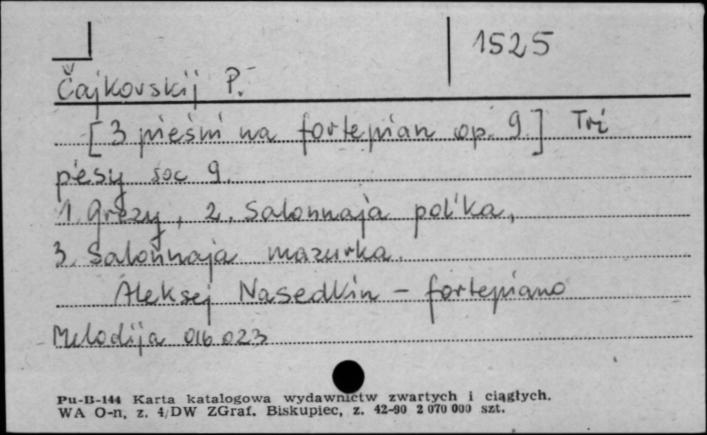 1525
Čajkovskij P.
[3 pieśni na fortepian op. 9.] Tri
p'esy soč 9.
1. Grëzy, 2. Salonnaja pol'ka,
3. Salonnaja mazurka.
Aleksej Nasedkin - fortepiano
Melodija 016023
Pu-B-144 Karta katalogowa wydawnictw zwartych i ciągłych.
WA O-n, z. 4/DW ZGraf. Biskupiec, z. 42-90 2 070 000 szt.